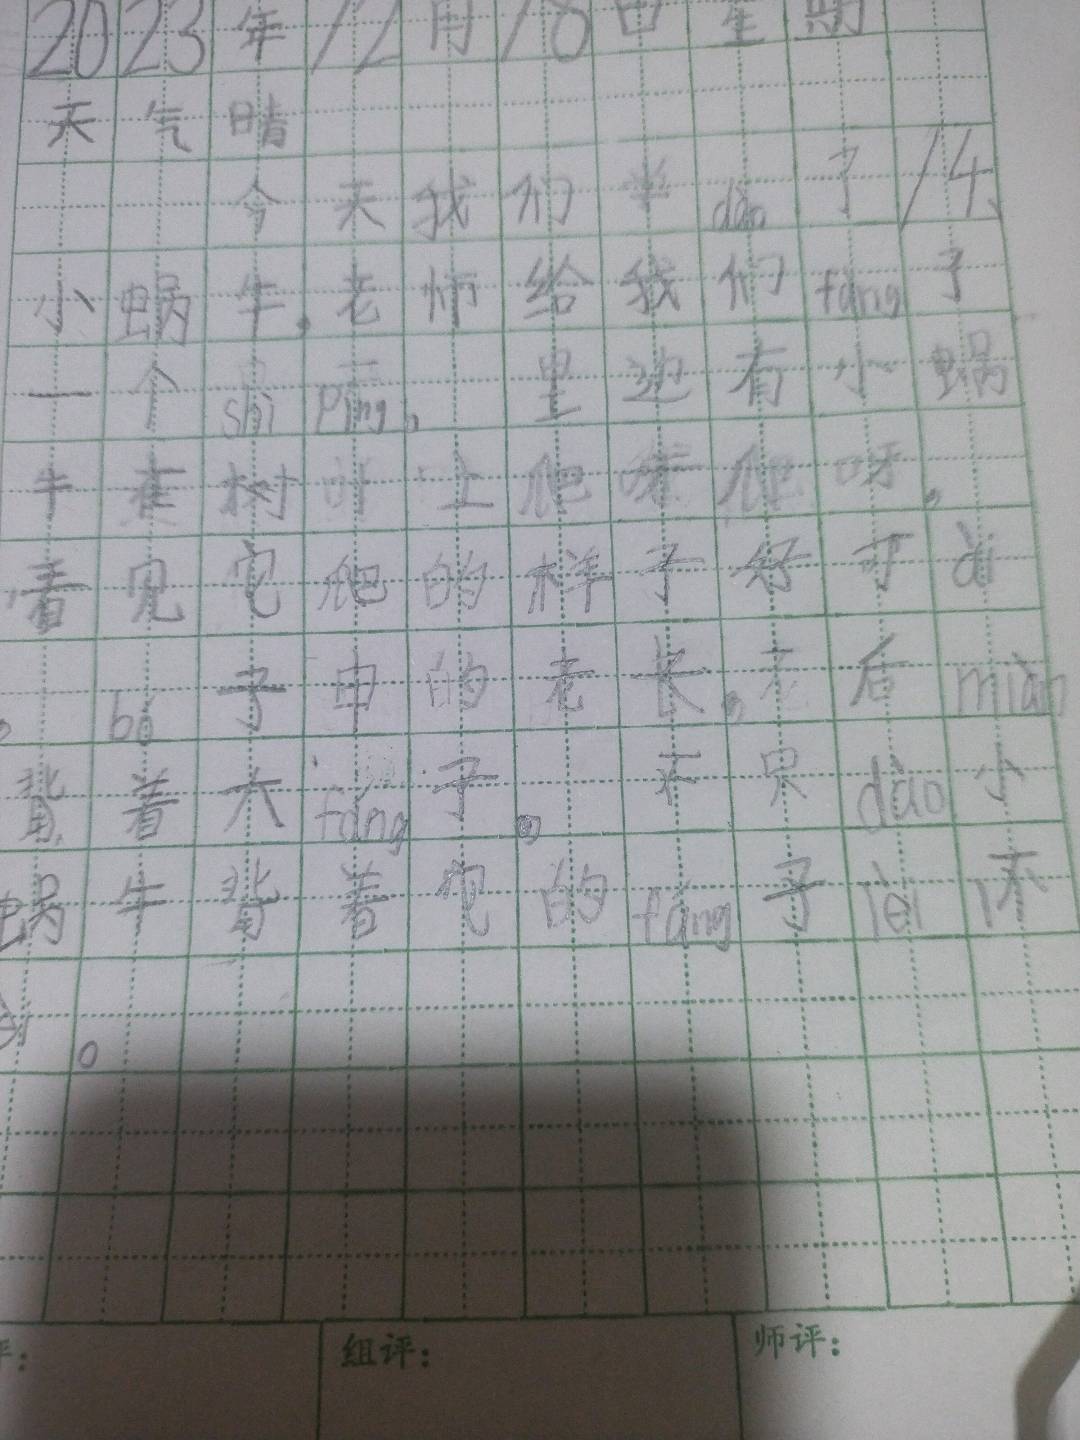 2023年12月18日星期
天气晴
今天我们学dào了14、
小蜗牛,老师给我们fàng了
一个shì píng,里边有小蜗
牛在树叶上爬呀爬呀,
看见它爬的样子好可ài
,bó子申的老长,老后miàn
背着大fáng子。不只dào小
蜗牛背着它的fáng子lèi不
lèi。
评:
组评:
师评: